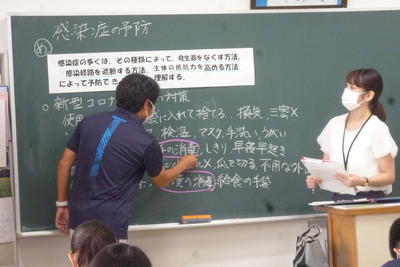 感染症の予防
め
感染症の多くは、その種類によって、発生源をなくす方法、
感染経路を遮断する方法、主体の抵抗力を高める方法
によって予防でき 理解する。
○新型コロナ 対策
使用 に入れて捨てる、換気、三密✕
検温、マスク、手洗い、うがい
の消毒、しきり、早寝早起き
✕、爪を切る、不用な外
の消毒 給食の手袋